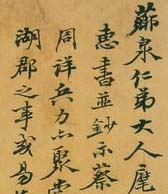 泉仁弟大人麾
惠書並鈔示蔡
周詳兵力亦聚
湖郡之事或易